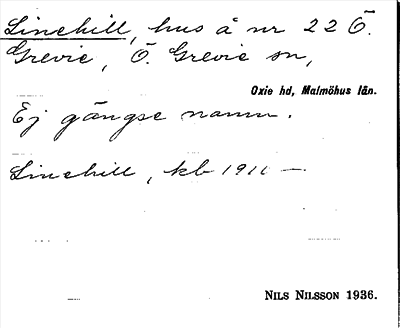 Linehill, hus å nr 22 Ö.
Grevie, Ö. Grevie sn,
Oxie hd, Malmöhus län.
Ej gängse namn.
Linehill, kb 1911 —
NILS NILSSON 1936.